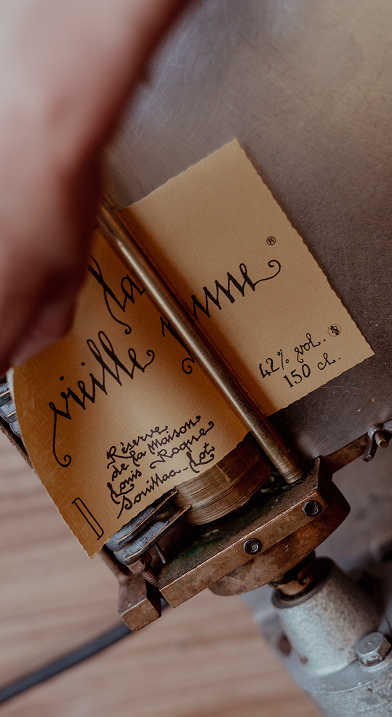 La
vieille prune ®
Réserve
de la Maison
Louis Roque
Souillac-Lot
42% vol.
150 cl.
D